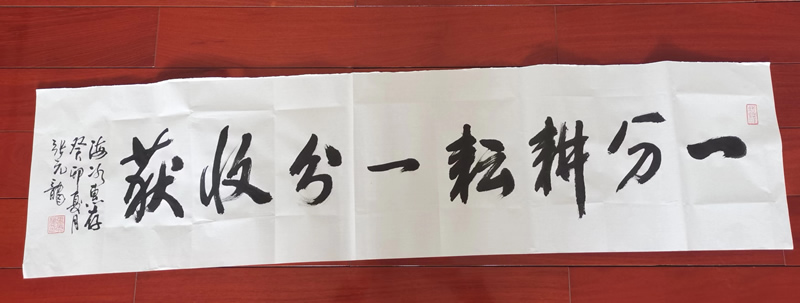 一分耕耘一分收获
海冰惠存
癸卯夏月
张元龙